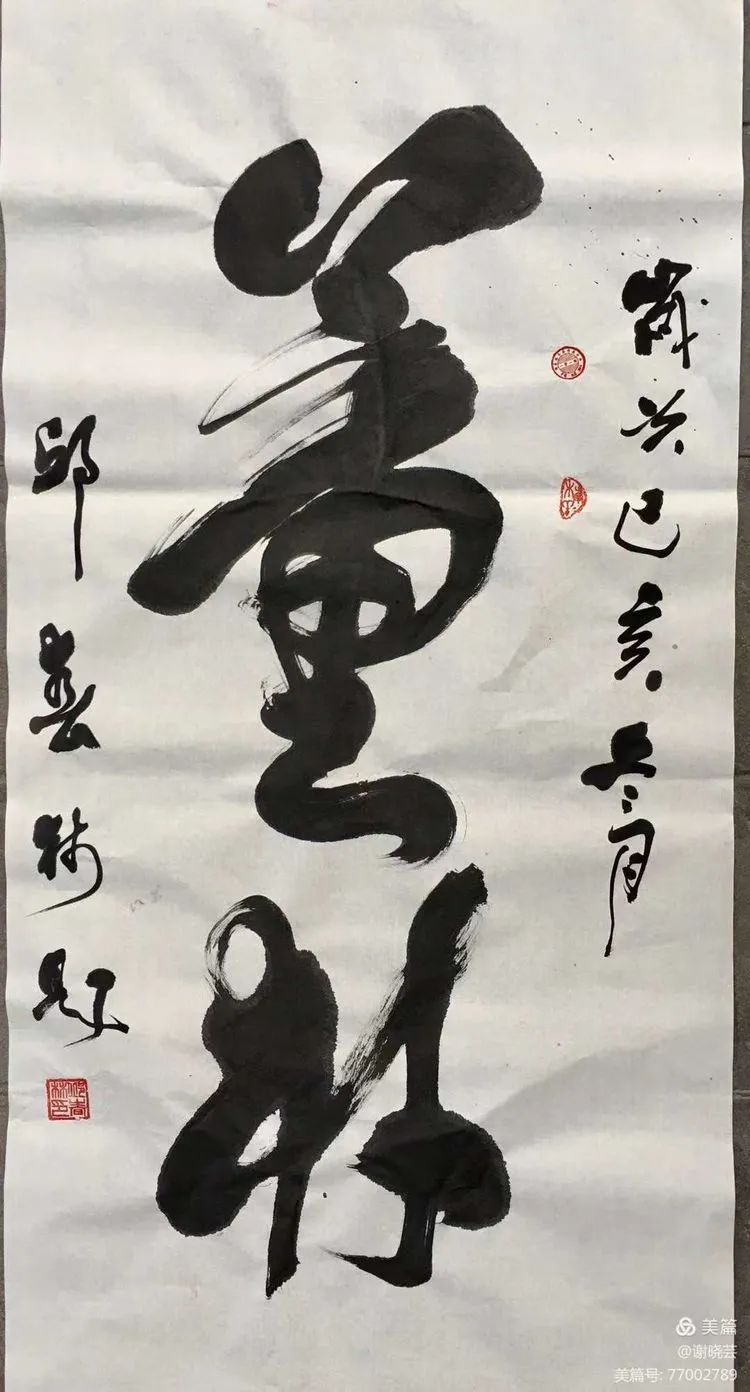 歲次己亥冬月
董村
邱春林题
美篇
@谢晓芸
美篇号: 77002789